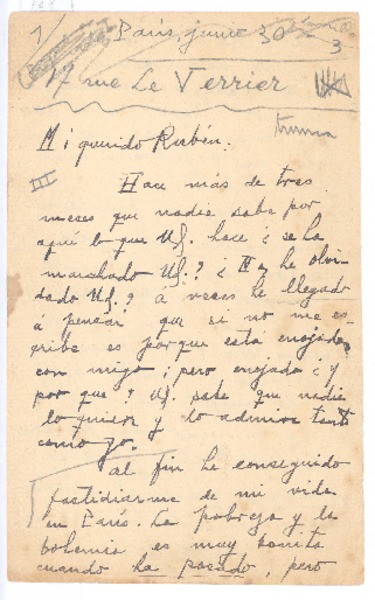 1 París, junio 30
3
17 rue Le Verrier
Mi querido Rubén.
III Hace más de tres
meses que nadie sabe por
aquí lo que Ud. hace ¿se ha
marchado Ud.? ¿ he olvi
dado Ud.? á veces he llegado
á pensar que si no me es-
cribe es porque está enojado
con migo; pero enojado ¿y
por que? Ud. sabe que nadie
lo quiere y lo admira tanto
como yo.
Al fin he conseguido
fastidiarme de mi vida
en París. La pobreza y la
bohemia es muy bonita
cuando ha pasado, pero